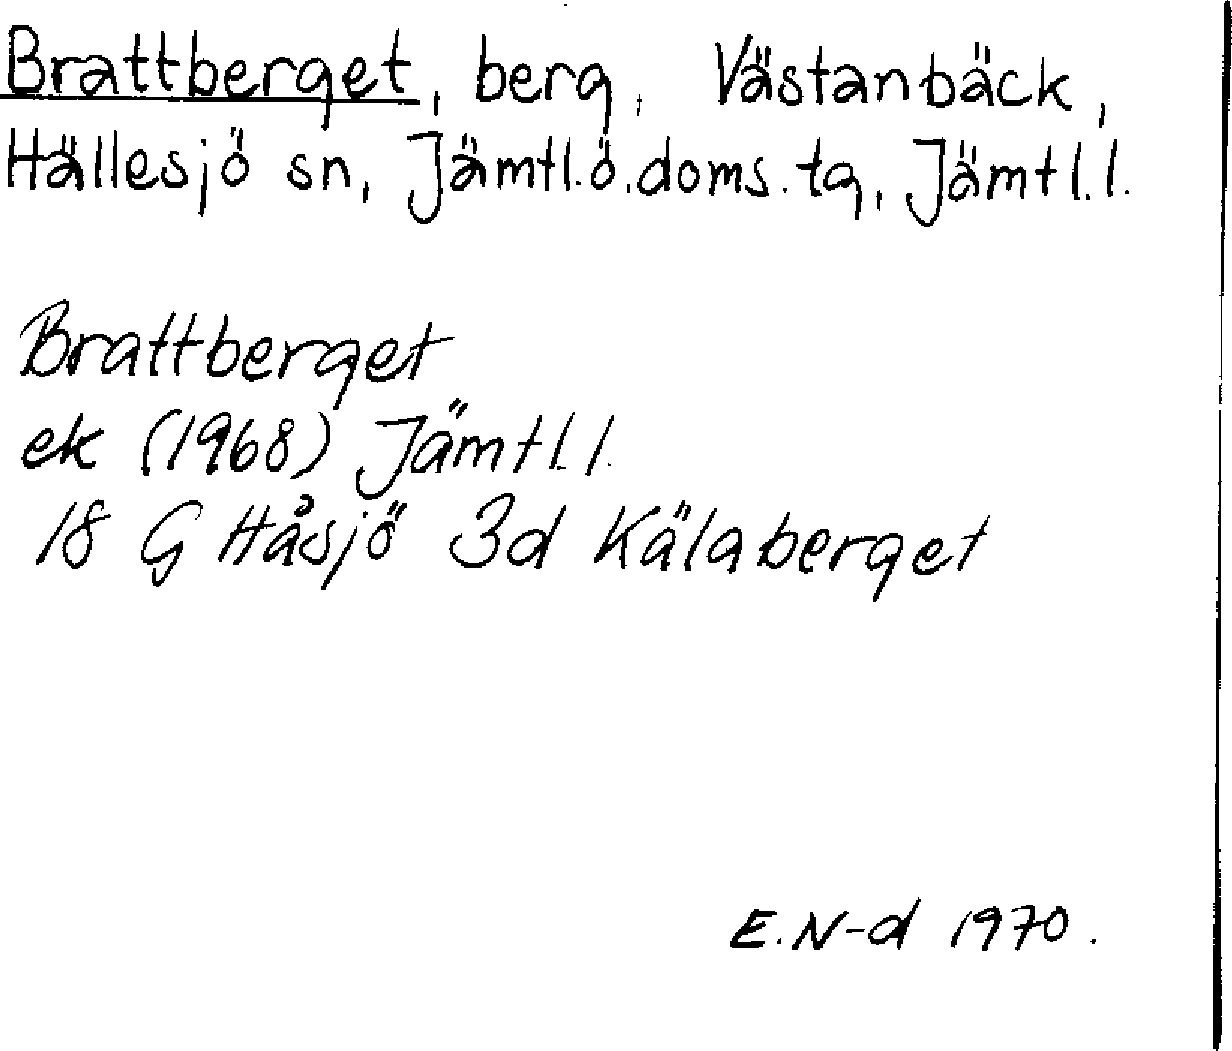 Brattberget, berg, Västanbäck,
Hällesjö sn, Jämtl.ö.doms.tg, Jämtl.l.
Brattberget
ek (1968) Jämtl.l.
18 G Håsjö 3d Kälaberget
E.N-d 1970.